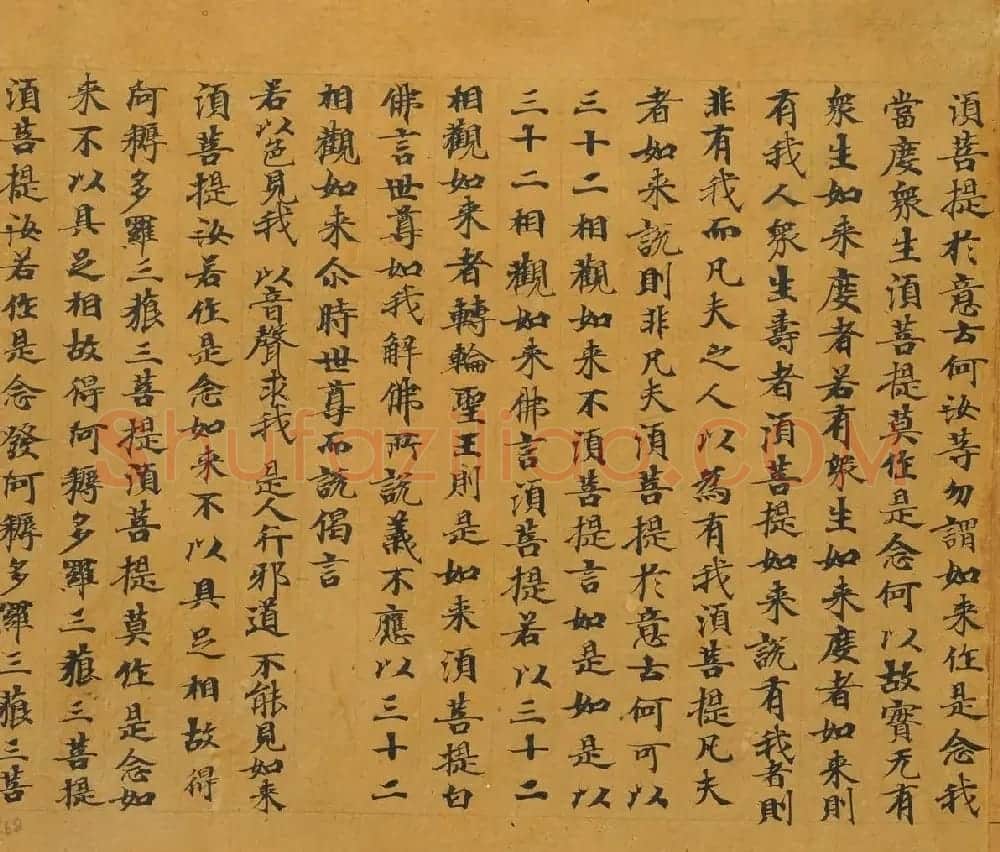 須菩提於意云何汝等勿謂如来作是念我
當度衆生須菩提莫作是念何以故實无有
衆生如来度者若有衆生如来度者如来則
有我人衆生壽者須菩提如来說有我者則
非有我而凡夫之人以為有我須菩提凡夫
者如来說則非凡夫須菩提於意云何可以
三十二相觀如来不須菩提言如是如是以
三十二相觀如来佛言須菩提若以三十二
相觀如来者轉輪聖王則是如来須菩提白
佛言世尊如我解佛所說義不應以三十二
相觀如来尒時世尊而說偈言
若以色見我 以音聲求我 是人行邪道 不能見如来
須菩提汝若作是念如来不以具足相故得
阿耨多羅三藐三菩提須菩提莫作是念如
来不以具足相故得阿耨多羅三藐三菩提
須菩提汝若作是念發阿耨多羅三藐三菩
Shufaziliao.COM